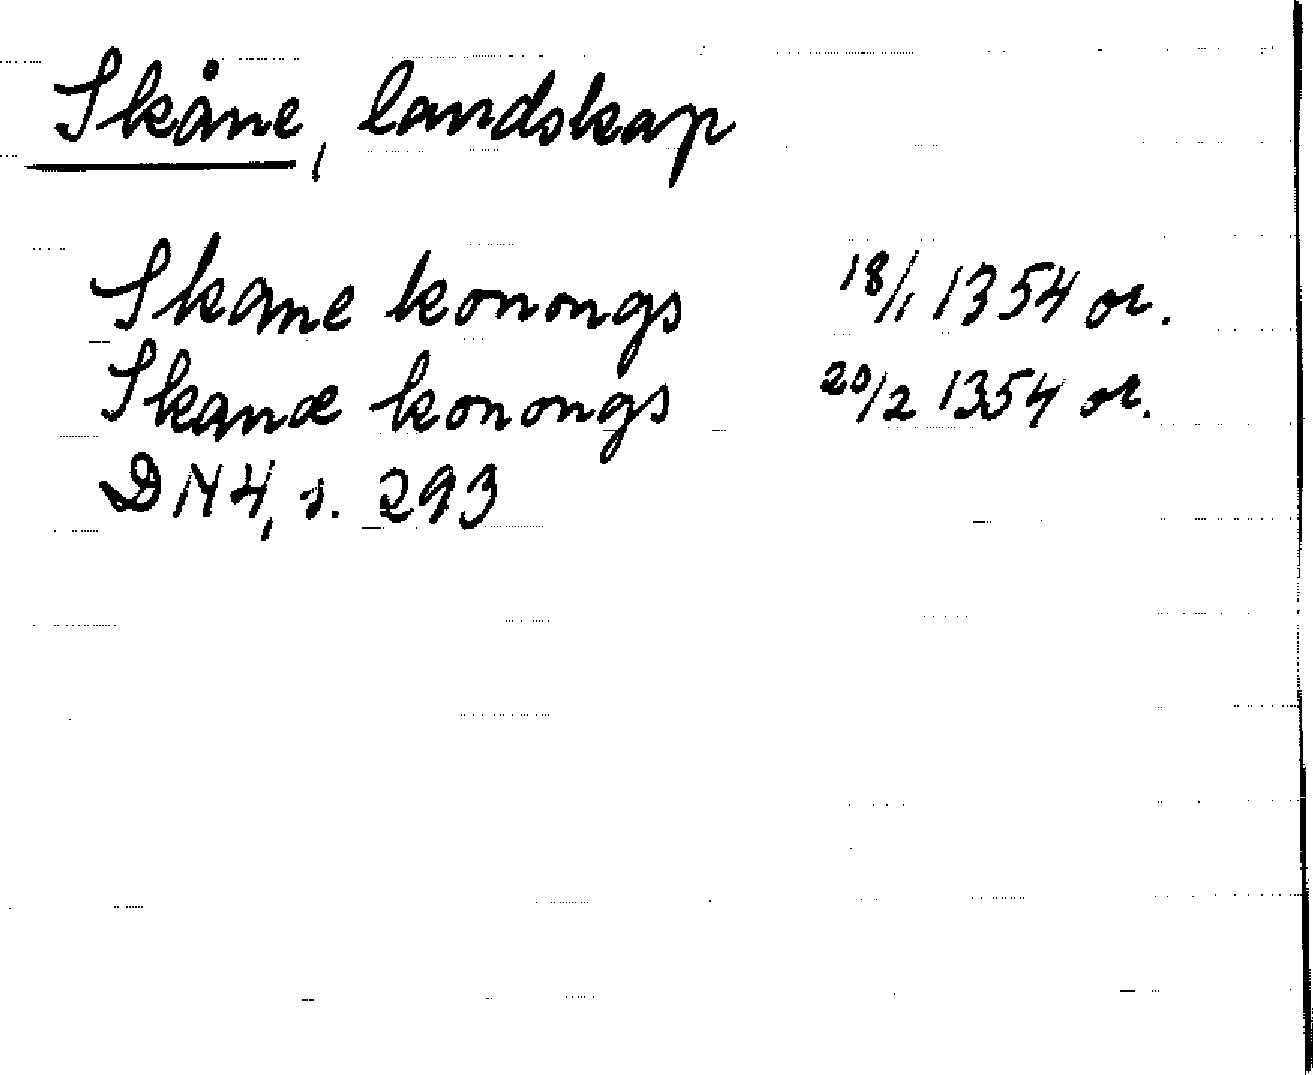 Skåne, landskap
Skane konongs 18/1 1354 or.
Skanæ konongs 20/2 1354 or.
DN 4, s. 293